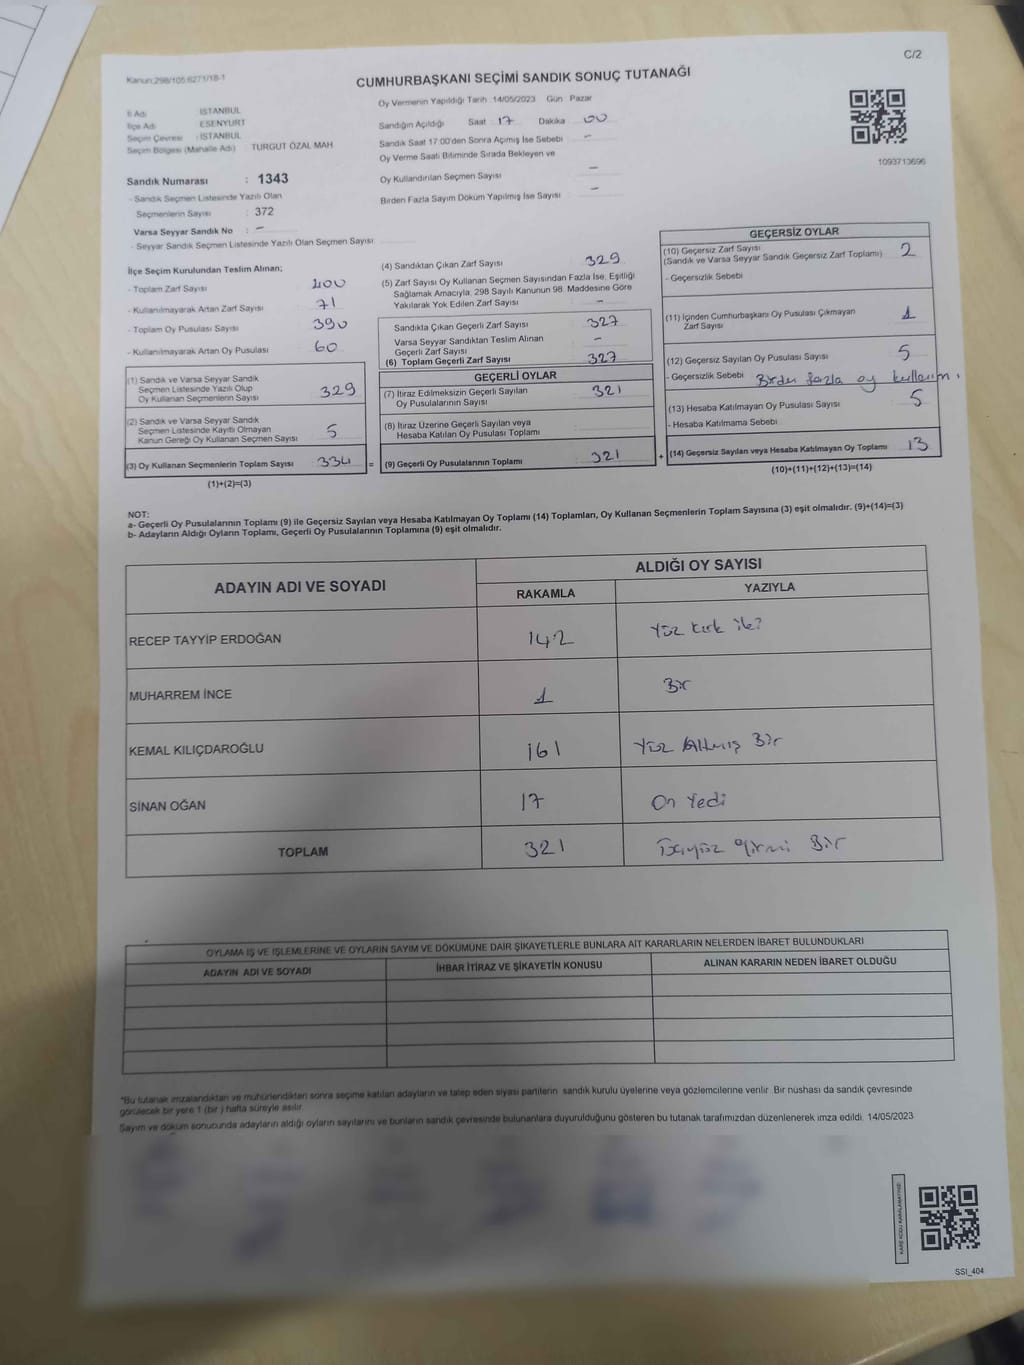 C/2
Kanun:298/105 6271/18-1
CUMHURBAŞKANI SEÇİMİ SANDIK SONUÇ TUTANAĞI
İl Adı İSTANBUL
İlçe Adı ESENYURT
Seçim Çevresi : İSTANBUL
Seçim Bölgesi (Mahalle Adı) TURGUT ÖZAL MAH
Sandık Numarası : 1343
- Sandık Seçmen Listesinde Yazılı Olan
Seçmenlerin Sayısı : 372
Varsa Seyyar Sandık No : -
- Seyyar Sandık Seçmen Listesinde Yazılı Olan Seçmen Sayısı:
Oy Vermenin Yapıldığı Tarih: 14/05/2023 Gün Pazar
Sandığın Açıldığı Saat 17 Dakika 00
Sandık Saat 17:00'den Sonra Açılmış İse Sebebi -
Oy Verme Saati Bitiminde Sırada Bekleyen ve
Oy Kullandırılan Seçmen Sayısı -
Birden Fazla Sayım Döküm Yapılmış İse Sayısı -
1093713696
İlçe Seçim Kurulundan Teslim Alınan;
- Toplam Zarf Sayısı 400
- Kullanılmayarak Artan Zarf Sayısı 71
- Toplam Oy Pusulası Sayısı 390
- Kullanılmayarak Artan Oy Pusulası 60
(1) Sandık ve Varsa Seyyar Sandık
Seçmen Listesinde Yazılı Olup
Oy Kullanan Seçmenlerin Sayısı 329
(2) Sandık ve Varsa Seyyar Sandık
Seçmen Listesinde Kayıtlı Olmayan
Kanun Gereği Oy Kullanan Seçmen Sayısı 5
(3) Oy Kullanan Seçmenlerin Toplam Sayısı 334 =
(1)+(2)=(3)
(4) Sandıktan Çıkan Zarf Sayısı 329
(5) Zarf Sayısı Oy Kullanan Seçmen Sayısından Fazla İse, Eşitliği
Sağlamak Amacıyla, 298 Sayılı Kanunun 98. Maddesine Göre
Yakılarak Yok Edilen Zarf Sayısı -
Sandıkta Çıkan Geçerli Zarf Sayısı 327
Varsa Seyyar Sandıktan Teslim Alınan
Geçerli Zarf Sayısı -
(6) Toplam Geçerli Zarf Sayısı 327
GEÇERLİ OYLAR
(7) İtiraz Edilmeksizin Geçerli Sayılan
Oy Pusulalarının Sayısı 321
(8) İtiraz Üzerine Geçerli Sayılan veya
Hesaba Katılan Oy Pusulası Toplamı
(9) Geçerli Oy Pusulalarının Toplamı 321 +
GEÇERSİZ OYLAR
(10) Geçersiz Zarf Sayısı
(Sandık ve Varsa Seyyar Sandık Geçersiz Zarf Toplamı) 2
- Geçersizlik Sebebi
(11) İçinden Cumhurbaşkanı Oy Pusulası Çıkmayan
Zarf Sayısı 1
(12) Geçersiz Sayılan Oy Pusulası Sayısı 5
- Geçersizlik Sebebi Birden fazla oy kullanım.
(13) Hesaba Katılmayan Oy Pusulası Sayısı 5
- Hesaba Katılmama Sebebi
(14) Geçersiz Sayılan veya Hesaba Katılmayan Oy Toplamı 13
(10)+(11)+(12)+(13)=(14)
NOT:
a- Geçerli Oy Pusulalarının Toplamı (9) ile Geçersiz Sayılan veya Hesaba Katılmayan Oy Toplamı (14) Toplamları, Oy Kullanan Seçmenlerin Toplam Sayısına (3) eşit olmalıdır. (9)+(14)=(3)
b- Adayların Aldığı Oyların Toplamı, Geçerli Oy Pusulalarının Toplamına (9) eşit olmalıdır.
ADAYIN ADI VE SOYADI ALDIĞI OY SAYISI
RAKAMLA YAZIYLA
RECEP TAYYİP ERDOĞAN 142 Yüz kırk iki
MUHARREM İNCE 1 Bir
KEMAL KILIÇDAROĞLU 161 Yüz Altmış Bir
SİNAN OĞAN 17 On Yedi
TOPLAM 321 Üçyüz Yirmi Bir
OYLAMA İŞ VE İŞLEMLERİNE VE OYLARIN SAYIM VE DÖKÜMÜNE DAİR ŞİKAYETLERLE BUNLARA AİT KARARLARIN NELERDEN İBARET BULUNDUKLARI
ADAYIN ADI VE SOYADI İHBAR İTİRAZ VE ŞİKAYETİN KONUSU ALINAN KARARIN NEDEN İBARET OLDUĞU
*Bu tutanak imzalandıktan ve mühürlendikten sonra seçime katılan adayların ve talep eden siyasi partilerin sandık kurulu üyelerine veya gözlemcilerine verilir. Bir nüshası da sandık çevresinde
görülecek bir yere 1 (bir) hafta süreyle asılır.
Sayım ve döküm sonucunda adayların aldığı oyların sayılarını ve bunların sandık çevresinde bulunanlara duyurulduğunu gösteren bu tutanak tarafımızdan düzenlenerek imza edildi. 14/05/2023
KARE KODU KARALAMAYINIZ!
SSI_404